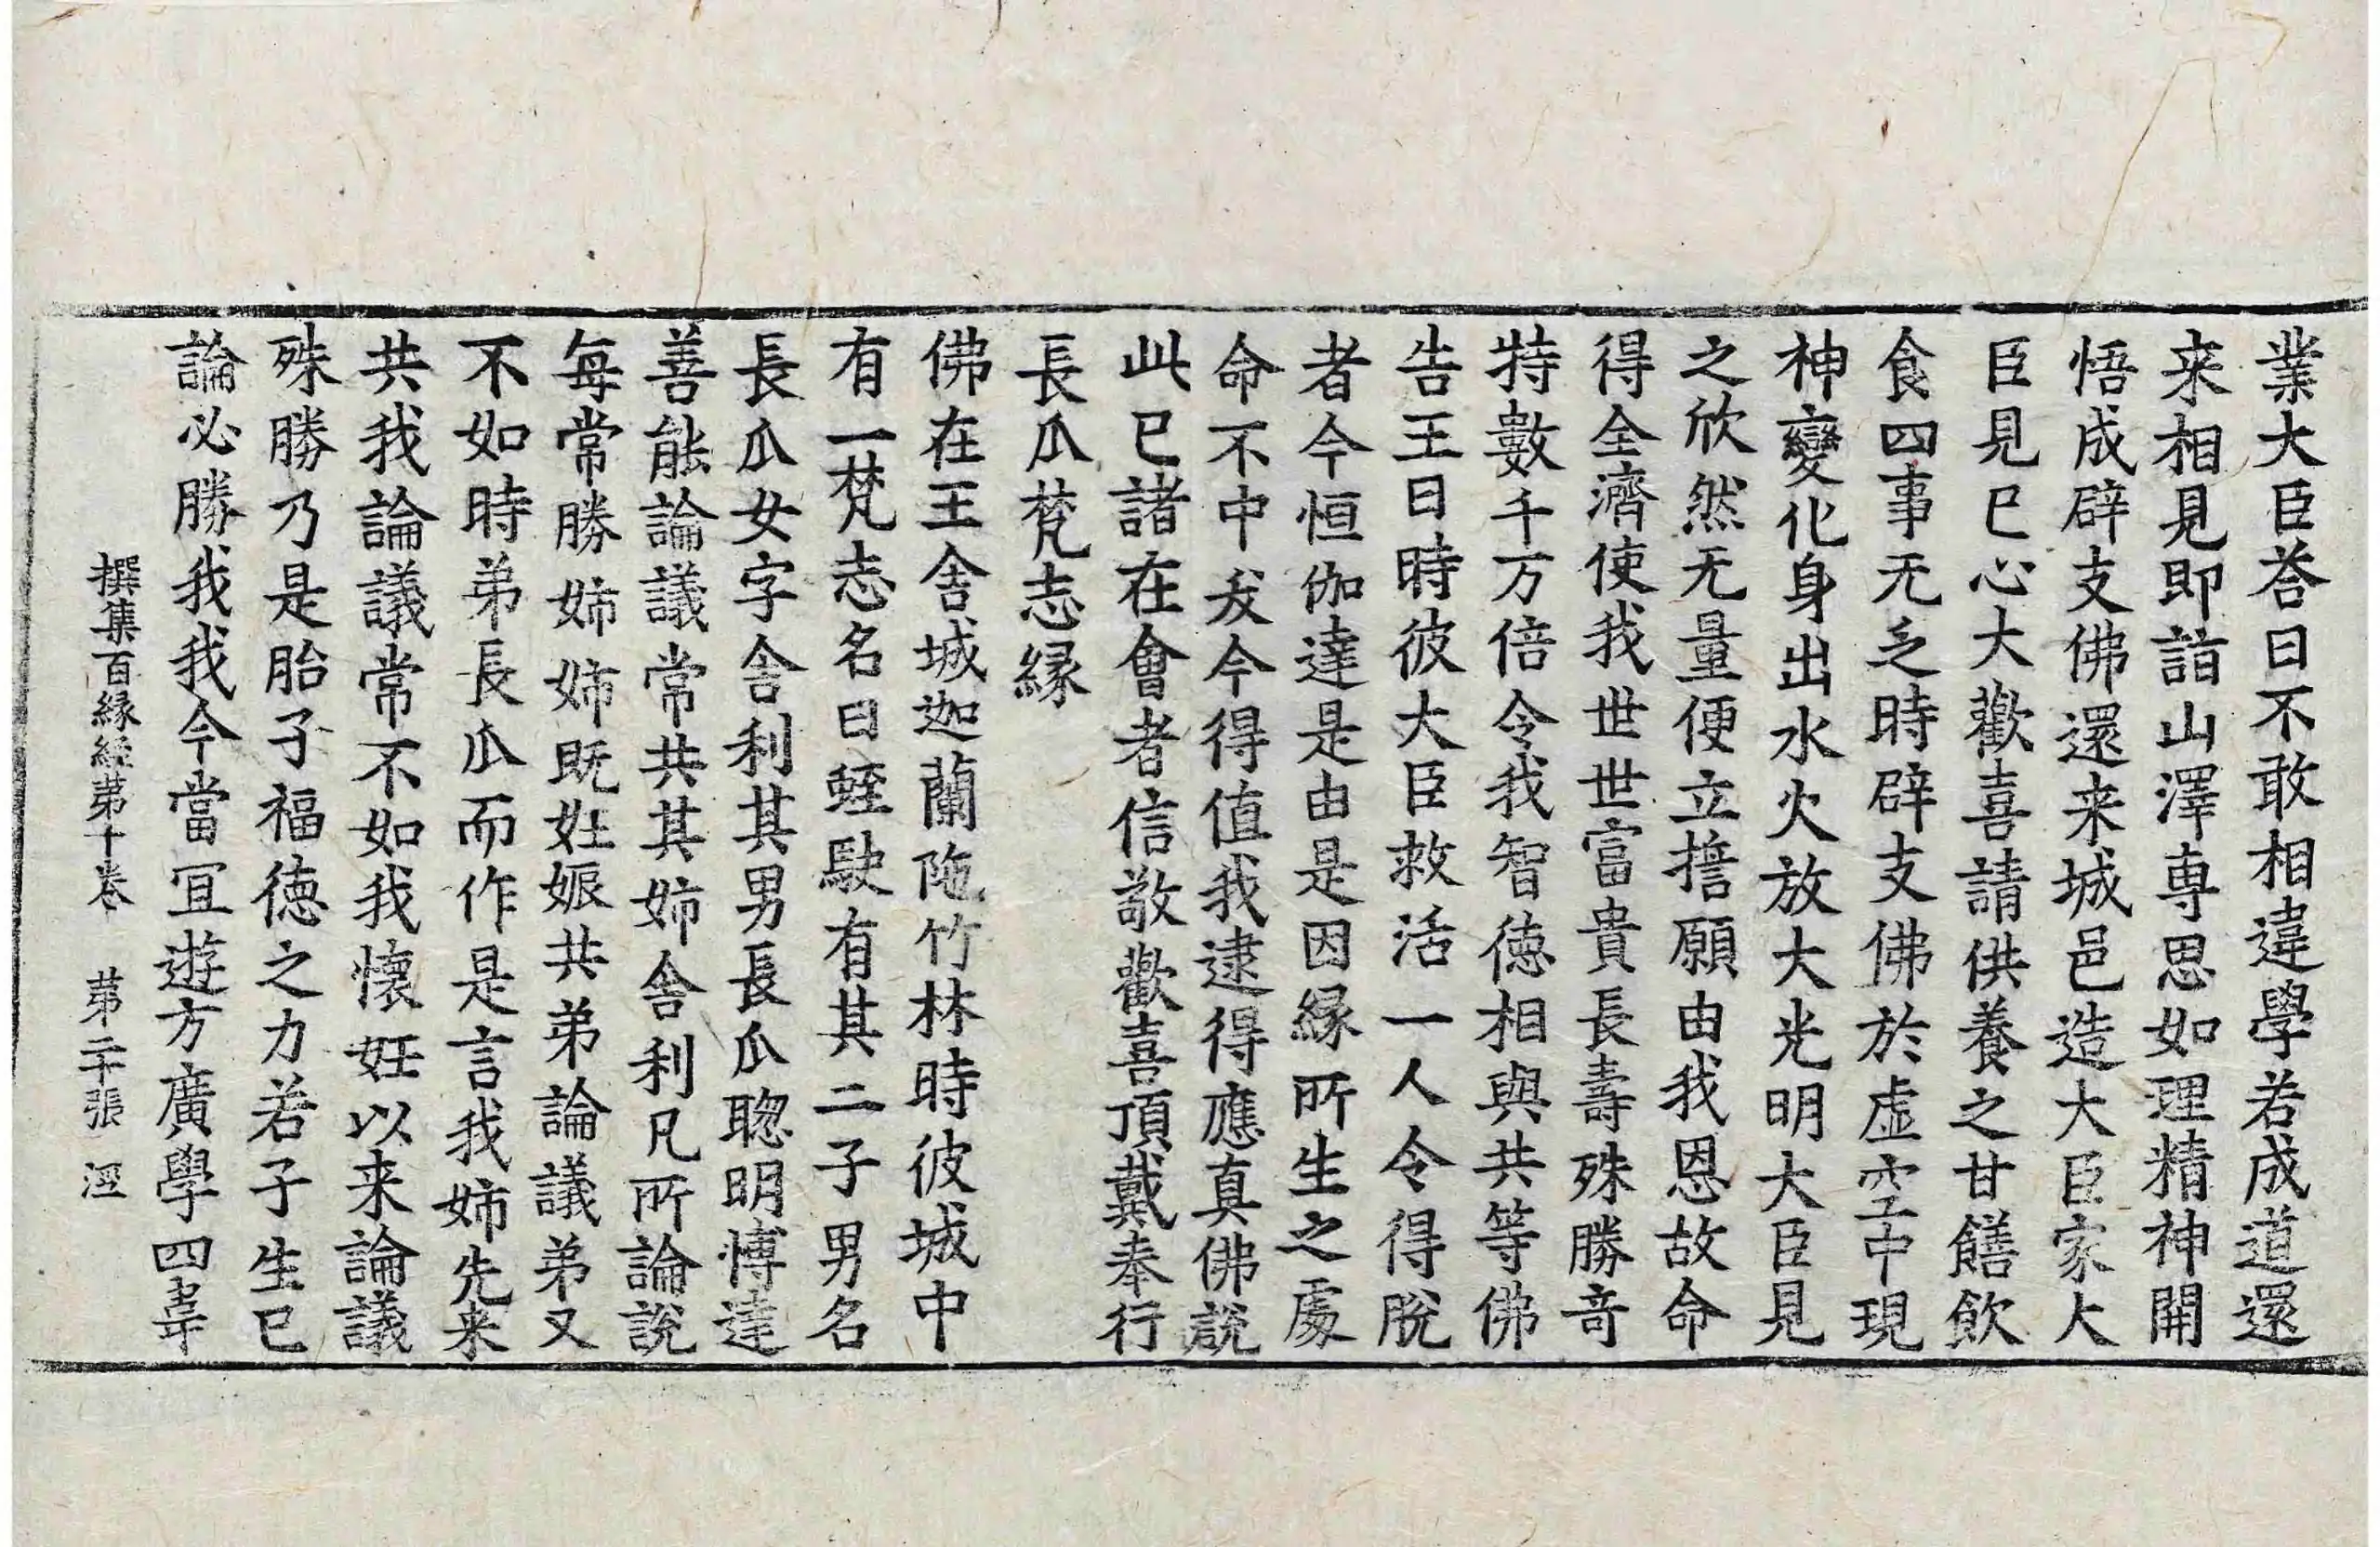 業大臣荅曰不敢相違學若成道還
来相見即詣山澤専思如理精神開
悟成辟支佛還来城邑造大臣家大
臣見已心大歡喜請供養之甘饍飲
食四事无乏時辟支佛於虚空中現
神變化身出水火放大光明大臣見
之欣然无量便立擔願由我恩故命
得全濟使我世世富貴長壽殊勝竒
特數千万倍令我智徳相與共等佛
告王曰時彼大臣救活一人令得脫
者今恒伽達是由是因緣所生之處
命不中夭今得值我逮得應真佛說
此已諸在會者信敬歡喜頂戴奉行
長瓜梵志緣
佛在王舍城迦蘭陁竹林時彼城中
有一梵志名曰蛭駛有其二子男名
長瓜女字舍利其男長瓜聡明博達
善能論議常共其姉舍利凡所論說
每常勝姉姉既妊娠共弟論議弟又
不如時弟長瓜而作是言我姉先来
共我論議常不如我懷妊以来論議
殊勝乃是胎子福徳之力若子生已
論必勝我我今當冝遊方廣學四韋
撰集百緣經苐十卷　苐二十張　溼